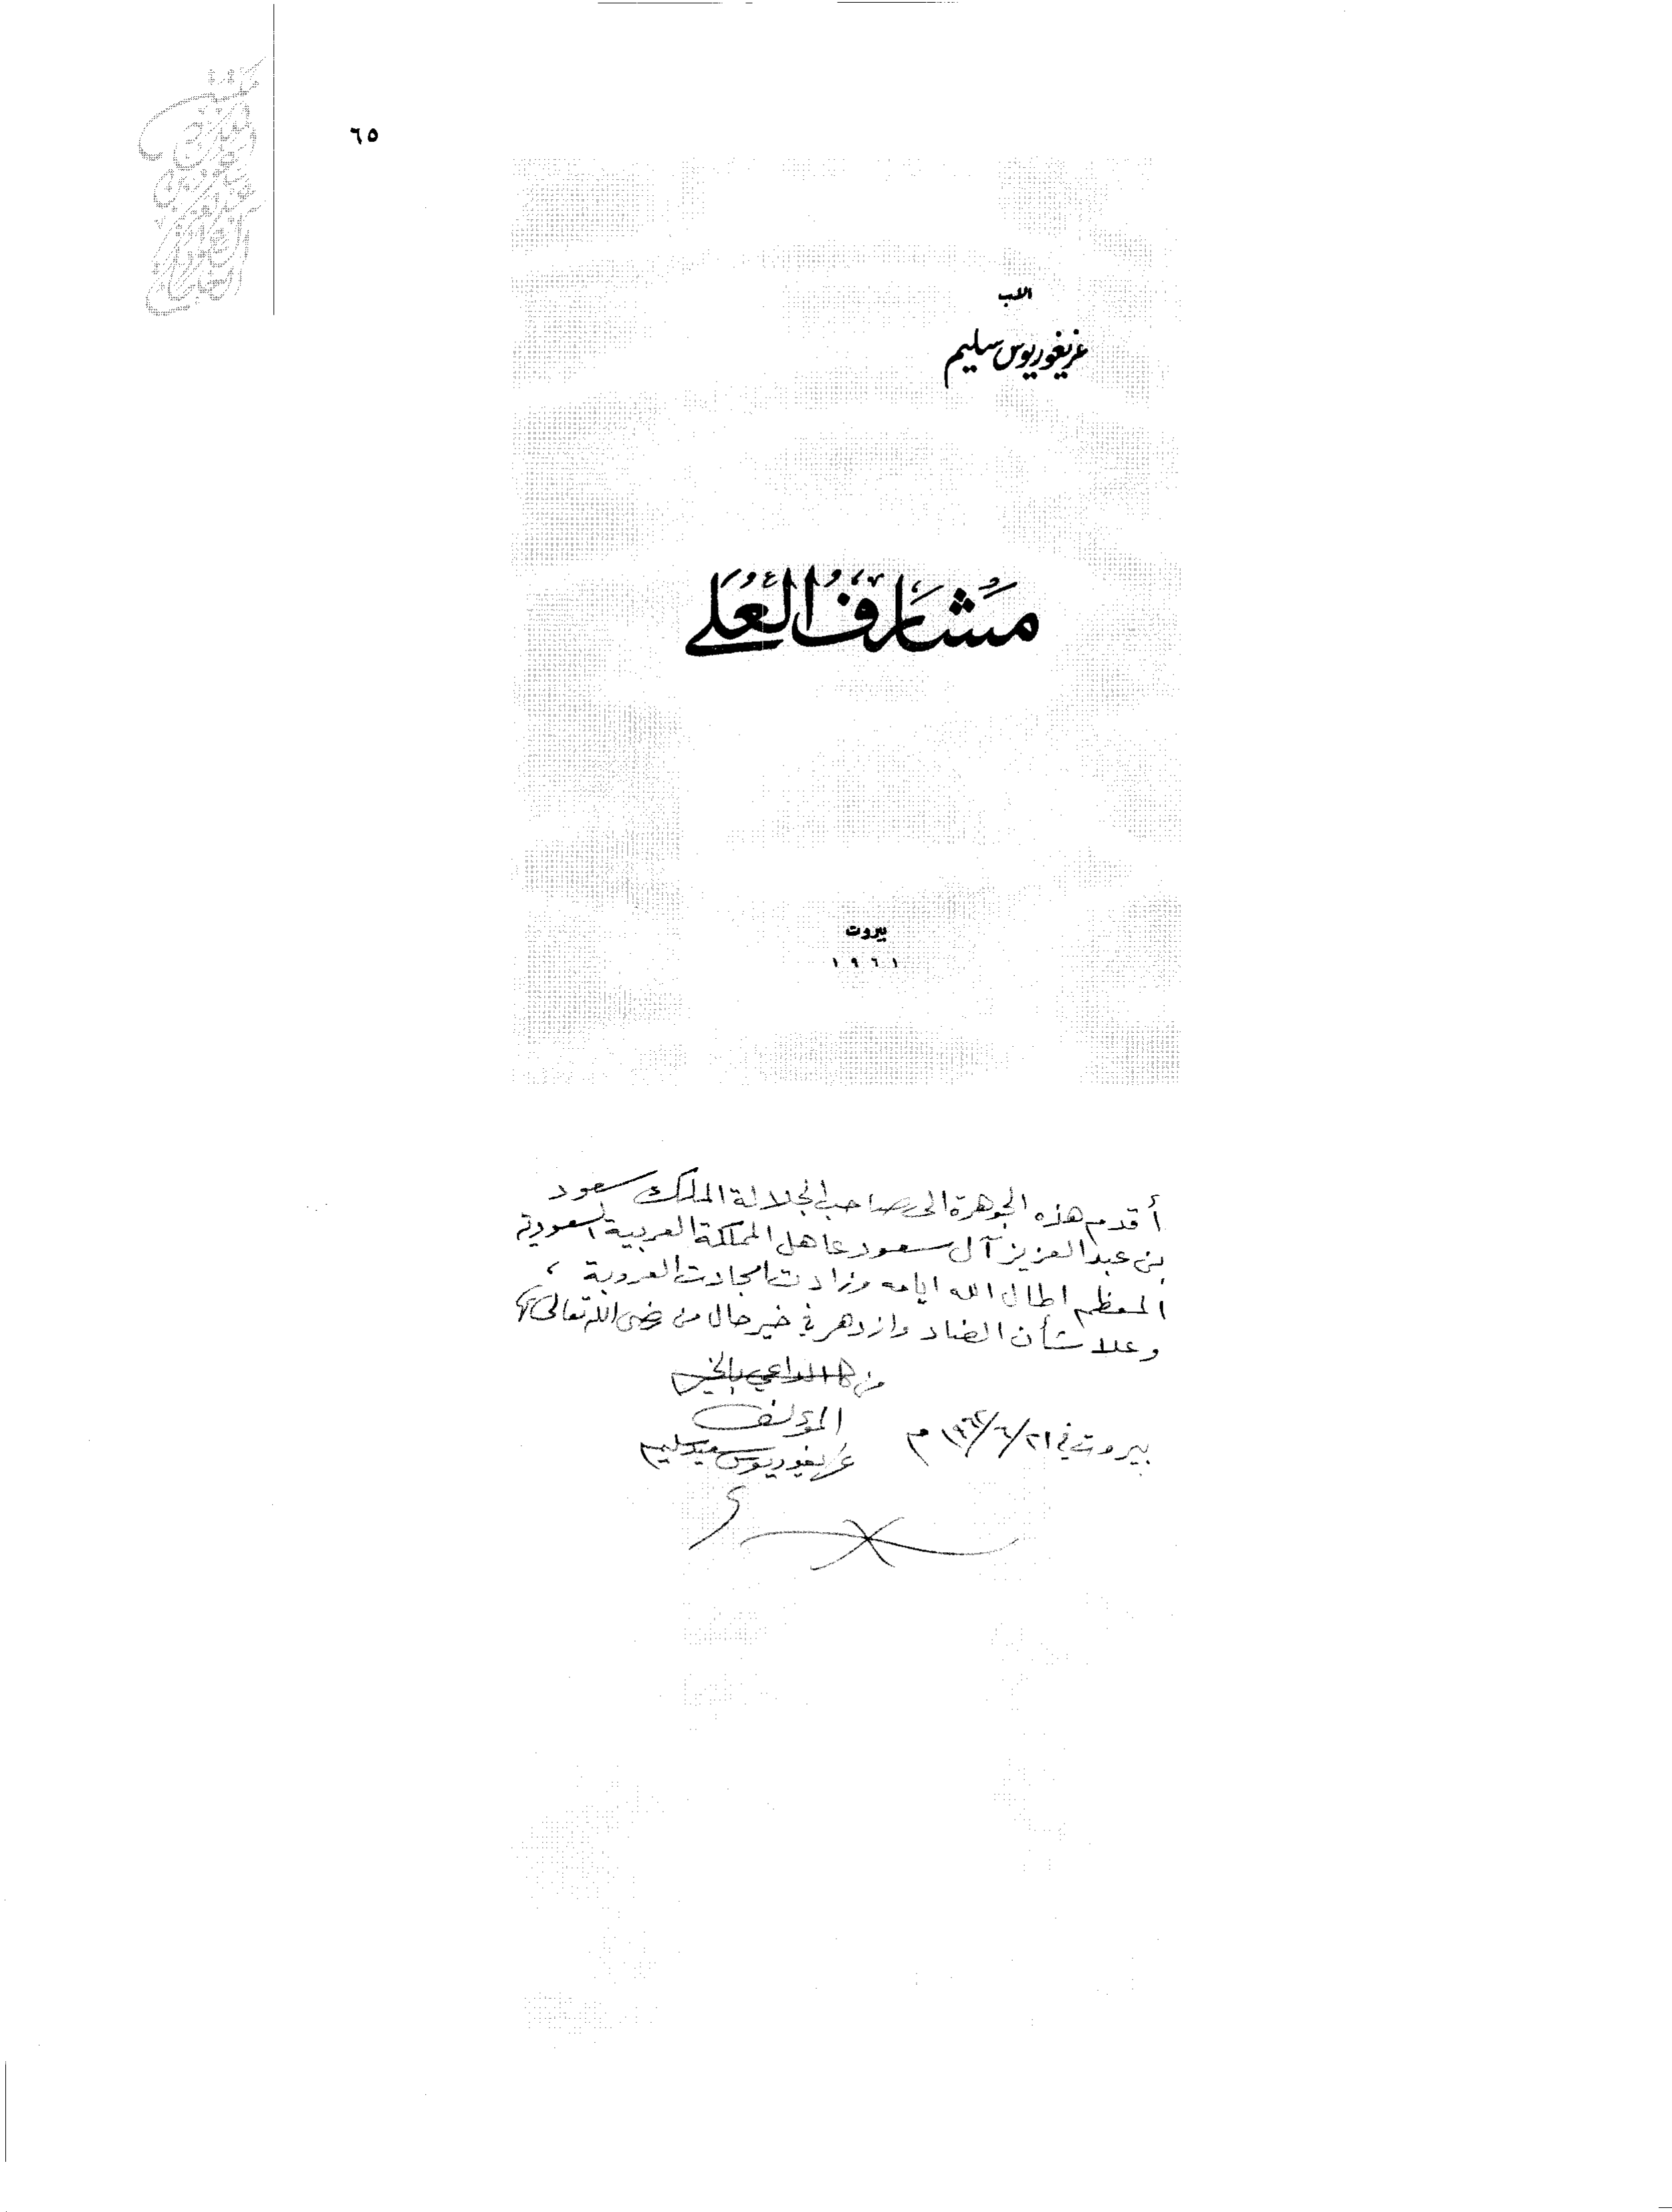 ٦٥
الأب
غريغوريوس سليم
مَشَارِفُ العُلَى
بيروت
١٩٦١
أقدم هذه الجوهرة الى صاحب الجلالة الملك سعود
بن عبدالعزيز آل سعود عاهل المملكة العربية السعودية
المعظم اطال الله ايامه وزادت امجادت العروبة ،
وعلا شأن الضاد وازدهر في خير حال من رضى الله تعالى
من الداعي بالخير
المؤلف
بيروت في ٢١/٦/١٩٦٢ م
غريغوريوس سليم